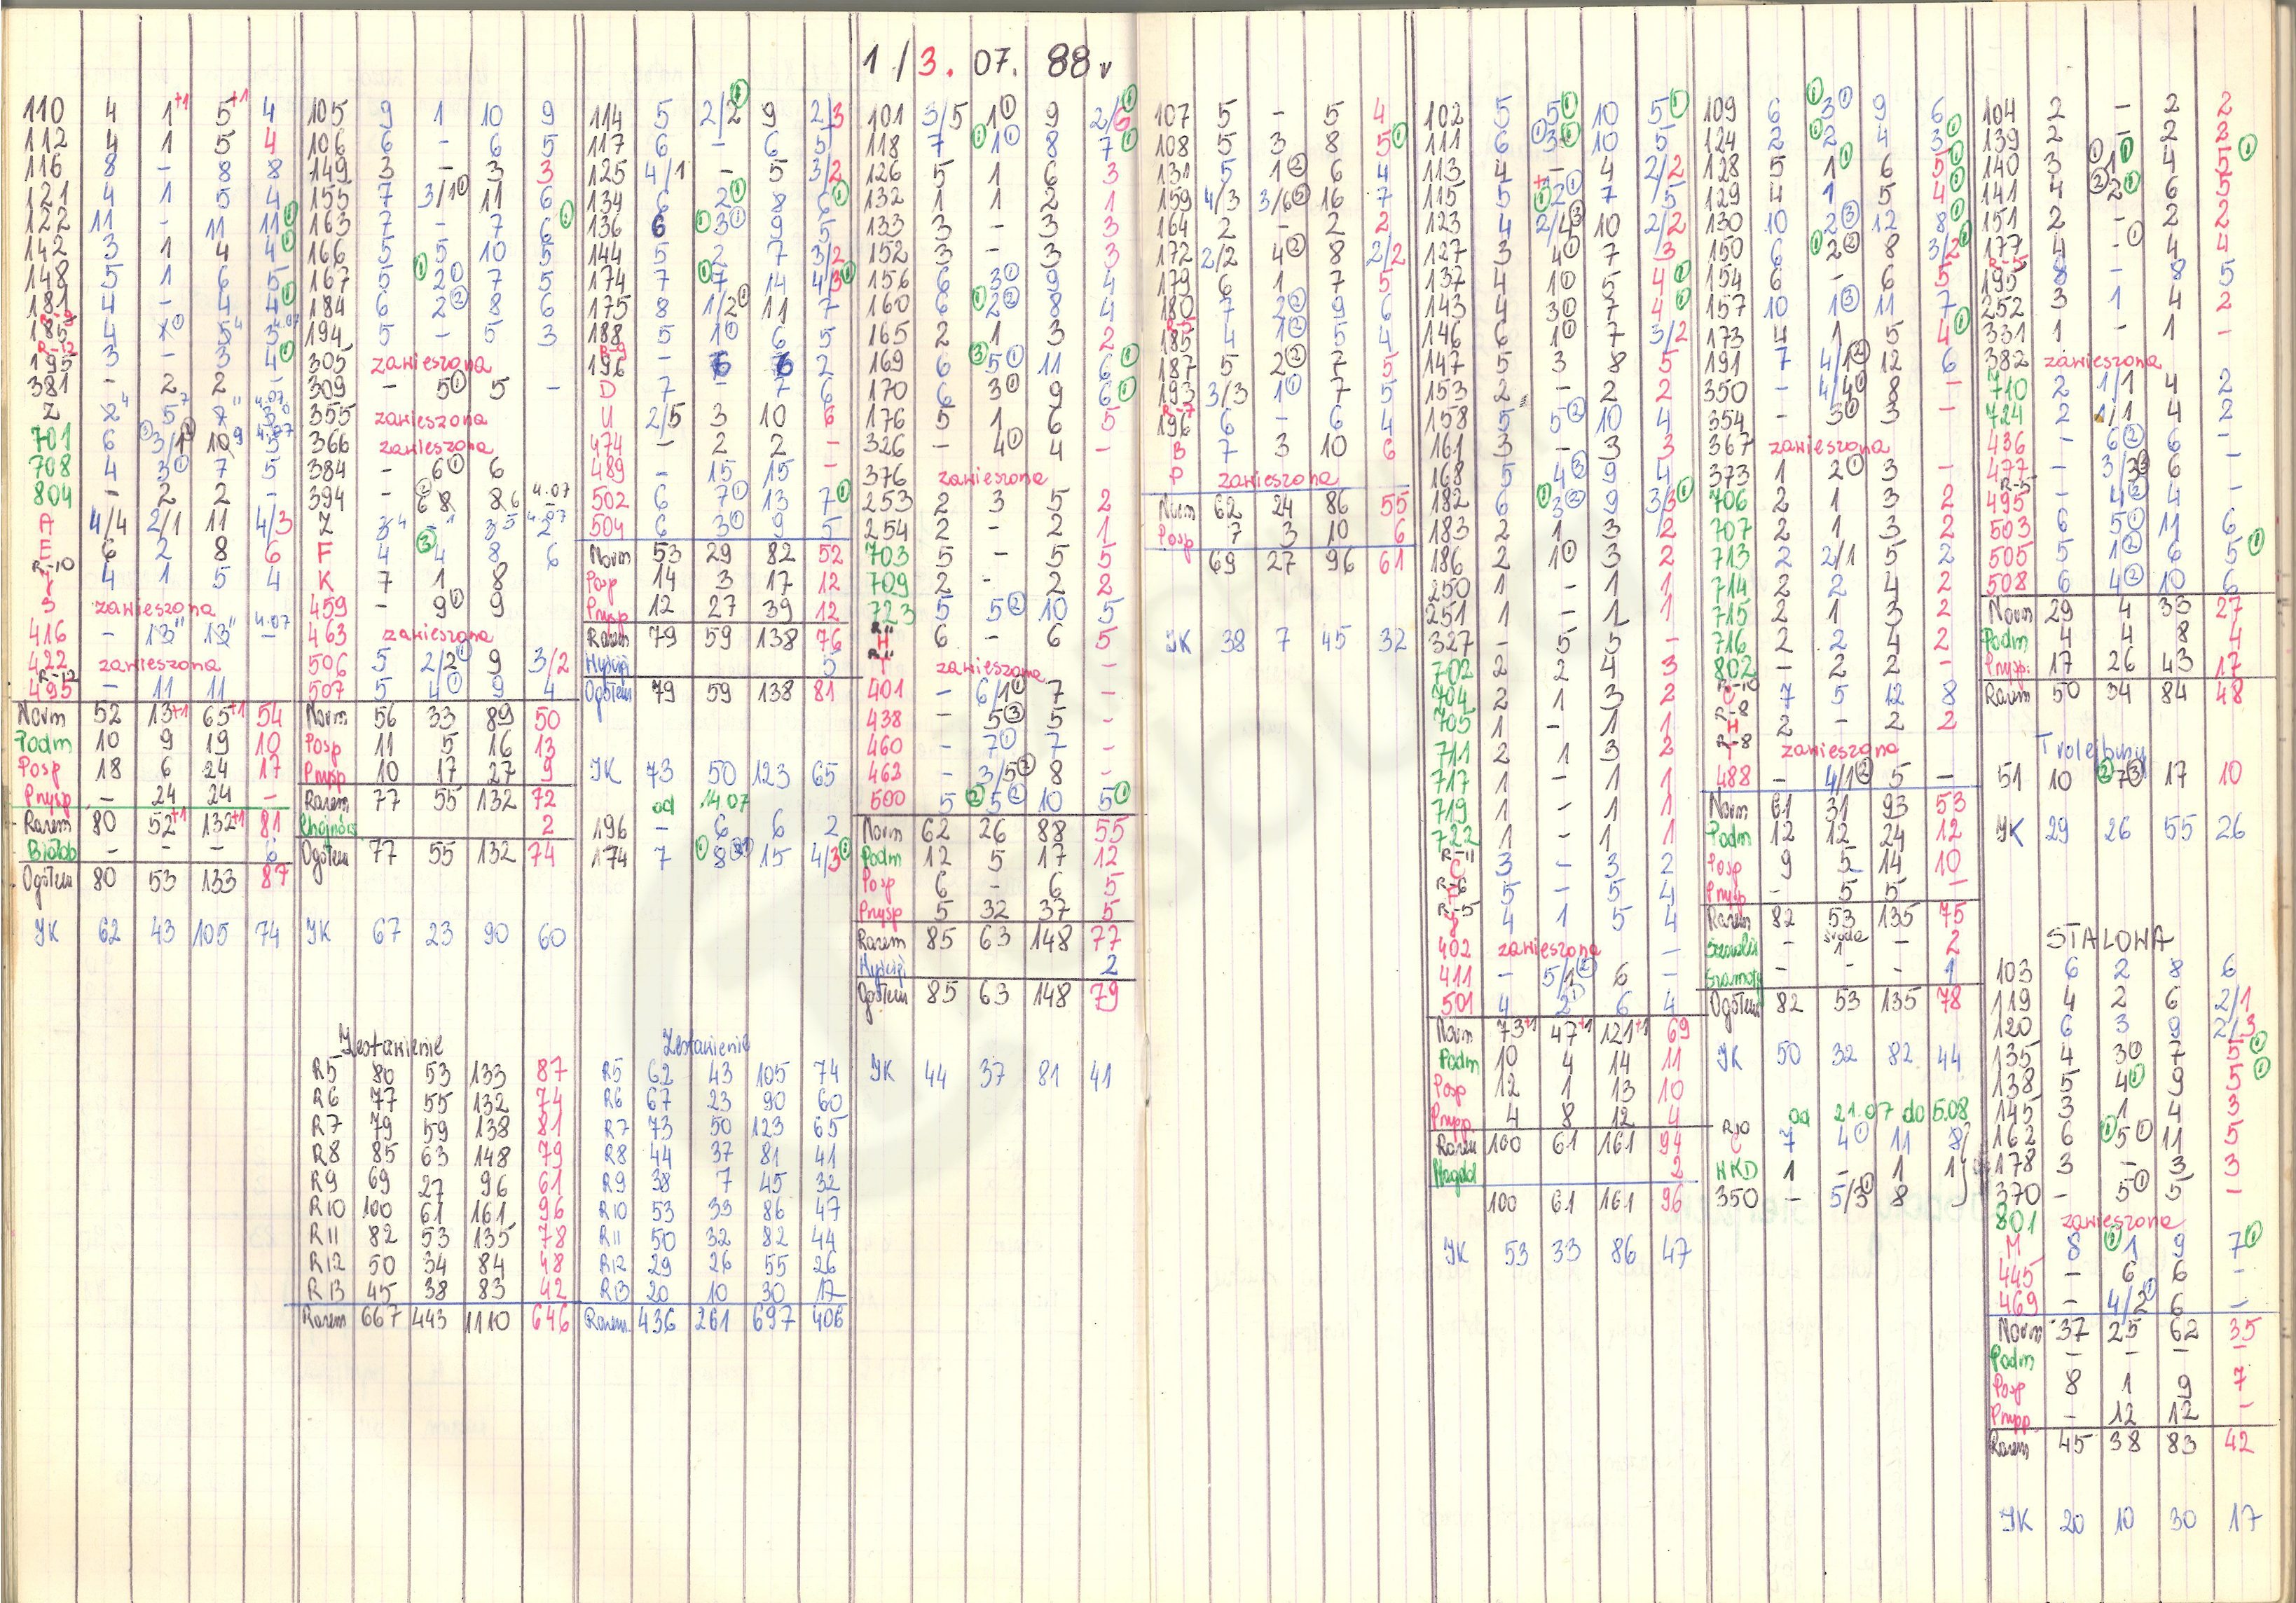 1 / 3. 07. 88r
110 4 1+1 5+1 4
112 4 1 5 4
116 8 – 8 8
121 4 1 5 4
122 11 – 11 11①
142 3 1 4 4①
148 5 1 6 5
181 4 – 4 4①
195 3 – 3 4①
381 – 2 2 –
708 4 3① 7 5
804 – 2 2 –
A 4/4 2/1 11 4/3
E 6 2 8 6
R-10
4 1 5 4
zawieszona
416 – 13" 13" – 4.07
422 zawieszona
R-12
495 – 11 11
Norm 52 13+1 65+1 54
Podm 10 9 19 10
Posp 18 6 24 17
Prysp – 24 24 –
Razem 80 52+1 132+1 81
Białob – – – 6
Ogółem 80 53 133 87
JK 62 43 105 74
105 9 1 10 9
106 6 – 6 5
149 3 – 3 3
155 7 3/1① 11 6
163 7 – 7 6①
166 5 5 10 5
167 5 ①2① 7 5
184 6 2② 8 6
194 5 – 5 3
305 zawieszona
309 – 5① 5 –
355 zawieszona
366 zawieszona
384 – 6① 6
F 4 ③4 8 6
K 7 1 8
459 – 9① 9
463 zawieszona
506 5 2/2① 9 3/2
507 5 4① 9 4
Norm 56 33 89 50
Posp 11 5 16 13
Prysp 10 17 27 9
Razem 77 55 132 72
Chojnów 2
Ogółem 77 55 132 74
JK 67 23 90 60
Zestawienie
R5 80 53 133 87
R6 77 55 132 74
R7 79 59 138 81
R8 85 63 148 79
R9 69 27 96 61
R10 100 61 161 96
R11 82 53 135 78
R12 50 34 84 48
R13 45 38 83 42
Razem 667 443 1110 646
114 5 2/2① 9 2/3
117 6 – 6 5
125 4/1 – 5 3/2
134 6 2① 8 6①
136 6 ①3① 9 5
144 5 2 7 3/2
174 7 ①7 14 4/3①
175 8 1/2① 11 7
188 5 1① 6 5
R-9
196 – 6 6 2
D 7 – 7 6
U 2/5 3 10 6
474 – 2 2 –
489 – 15 15 –
502 6 7① 13 7①
504 6 3① 9 5
Norm 53 29 82 52
Posp 14 3 17 12
Prysp 12 27 39 12
Razem 79 59 138 76
Wyścigi 5
Ogółem 79 59 138 81
JK 73 50 123 65
od 14.07
196 – 6 6 2
174 7 ①8 15 4/3①
Zestawienie
R5 62 43 105 74
R6 67 23 90 60
R7 73 50 123 65
R8 44 37 81 41
R9 38 7 45 32
R10 53 33 86 47
R11 50 32 82 44
R12 29 26 55 26
R13 20 10 30 17
Razem 436 261 697 406
101 3/5 1① 9 2/5①
118 7 ①1① 8 7①
126 5 1 6 3
132 1 1 2 1
133 3 – 3 3
152 3 – 3 3
156 6 3① 9 4
160 6 ①2② 8 4
165 2 1 3 2
169 6 ③5① 11 6①
170 6 3① 9 6①
176 5 1 6 5
326 – 4① 4 –
376 zawieszona
253 2 3 5 2
254 2 – 2 1
703 5 – 5 5
709 2 – 2 2
723 5 5② 10 5
R-11
H 6 – 6 5
R-11
zawieszona –
401 – 6/1① 7 –
438 – 5③ 5 –
460 – 7① 7 –
463 – 3/5② 8 –
500 5 ②5② 10 5①
Norm 62 26 88 55
Podm 12 5 17 12
Posp 6 – 6 5
Prysp 5 32 37 5
Razem 85 63 148 77
Wyścigi 2
Ogółem 85 63 148 79
JK 44 37 81 41
107 5 – 5 4
108 5 3 8 5①
131 5 1② 6 4
159 4/3 3/6② 16 7
164 2 – 2 2
172 2/2 4② 8 2/2
179 6 1 7 5
180 7 2② 9 6
R-5
185 4 1① 5 4
187 5 2② 7 5
193 3/3 1① 7 5
R-7
196 6 – 6 4
B 7 3 10 6
P zawieszona
Norm 62 24 86 55
Posp 7 3 10 6
69 27 96 61
JK 38 7 45 32
102 5 5① 10 5①
111 6 ①3① 10 5
113 4 – 4 2/2
115 5 ①2① 7 5
123 4 2/4③ 10 2/2
127 3 4① 7 3
137 4 1① 5 4①
143 4 3① 7 4①
146 6 1① 7 3/2
147 5 3 8 5
153 2 – 2 2
158 5 5② 10 4
161 3 – 3 3
168 5 4③ 9 4
182 6 ①3② 9 3/3①
183 2 1 3 2
186 2 1① 3 2
250 1 – 1 1
251 1 – 1 1
327 – 5 5 –
702 2 2 4 3
704 2 1 3 2
705 1 – 1 1
711 2 1 3 2
717 1 – 1 1
719 1 – 1 1
722 1 – 1 1
R-11
C 3 – 3 2
R-6
F 5 – 5 4
R-5
4 1 5 4
402 zawieszona –
411 – 5/1② 6 –
501 4 2① 6 4
Norm 73+1 47+1 121+1 69
Podm 10 4 14 11
Posp 12 1 13 10
Prysp. 4 8 12 4
Razem 100 61 161 94
Magdal 2
100 61 161 96
JK 53 33 86 47
109 6 ①3① 9 6
124 2 ①2 4 3①
128 5 1① 6 5①
129 4 1 5 4①
130 10 2③ 12 8①
150 6 ①2② 8 3/2①
154 6 – 6 5
157 10 1③ 11 7
173 4 1 5 4①
191 7 4/1② 12 6
350 – 4/4① 8 –
354 – 3① 3 –
367 zawieszona
373 1 2① 3 –
706 2 1 3 2
707 2 1 3 2
713 2 2/1 5 2
714 2 2 4 2
715 2 1 3 2
716 2 2 4 2
802 – 2 2 –
R-10
C 7 5 12 8
R-8
H 2 – 2 2
R-8
zawieszona
488 – 4/1② 5 –
Norm 61 31 93 53
Podm 12 12 24 12
Posp 9 5 14 10
Prysp – 5 5 –
Razem 82 53 135 75
– środa 1 – 2
– – – 1
Ogółem 82 53 135 78
JK 50 32 82 44
od 21.07 do 5.08
R10
C 7 4① 11 8
HKD 1 – 1 1
350 – 5/3① 8
104 2 – 2 2
139 2 – 2 2
140 3 ①1① 4 5①
141 4 ②2① 6 5
151 2 – 2 2
177 4 –① 4 4
R-5
195 8 – 8 5
252 3 1 4 2
331 1 – 1 –
382 zawieszona
710 2 1/1 4 2
724 2 1/1 4 2
436 – 6② 6 –
477 – 3/3③ 6 –
R-5
495 – 4② 4 –
503 6 5① 11 6
505 5 1② 6 5①
508 6 4② 10 6
Norm 29 4 33 27
Podm 4 4 8 4
Prysp. 17 26 43 17
Razem 50 34 84 48
Trolejbusy
51 10 ②7③ 17 10
JK 29 26 55 26
STALOWA
103 6 2 8 6
119 4 2 6 2/1
120 6 3 9 2/3
135 4 3① 7 5①
138 5 4① 9 5①
145 3 1 4 3
162 6 ①5① 11 5
178 3 – 3 3
370 – 5① 5 –
801 zawieszona
M 8 ①1 9 7①
445 – 6 6 –
469 – 4/2① 6 –
Norm 37 25 62 35
Podm – – – –
Posp 8 1 9 7
Prysp. – 12 12 –
Razem 45 38 83 42
JK 20 10 30 17